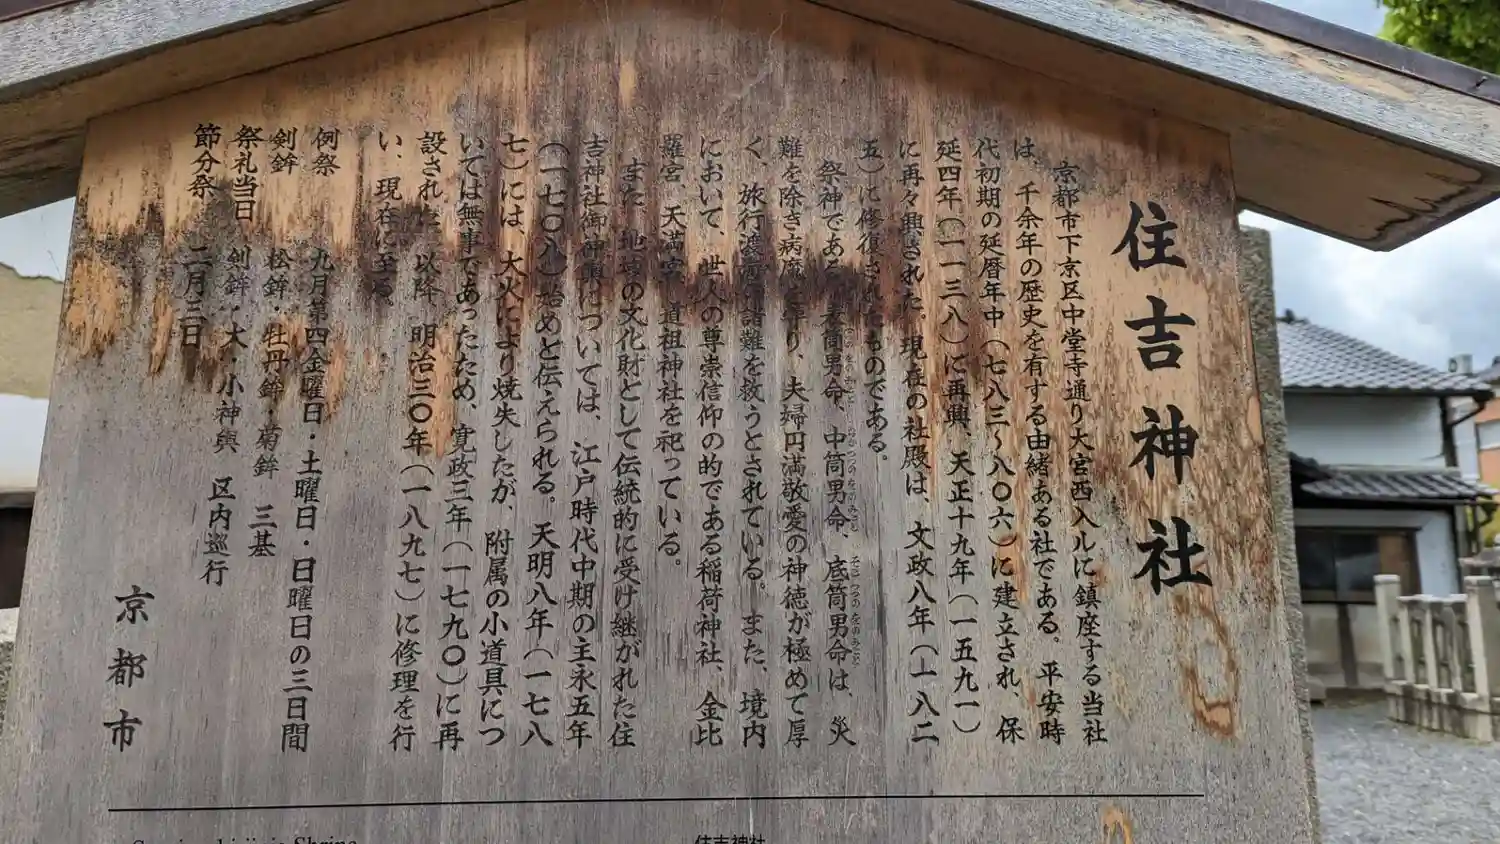 住吉神社
京都市下京区中堂寺通り大宮西入ルに鎮座する当社
は、千余年の歴史を有する由緒ある社である。平安時
代初期の延暦年中（七八三～八〇六）に建立され、保
延四年（一一三八）に再興、天正十九年（一五九一）
に再々興された。現在の社殿は、文政八年（一八二
五）に修復されたものである。
祭神である表筒男命、中筒男命、底筒男命は、災
難を除き病魔を守り、夫婦円満敬愛の神徳が極めて厚
く、旅行渡海の諸難を救うとされている。また、境内
において、世人の尊崇信仰の的である稲荷神社、金比
羅宮、天満宮、道祖神社を祀っている。
また、地域の文化財として伝統的に受け継がれた住
吉神社御神輿については、江戸時代中期の主永五年
（一七〇八）始めと伝えられる。天明八年（一七八
七）には、大火により焼失したが、附属の小道具につ
いては無事であったため、寛政三年（一七九〇）に再
設された。以降、明治三〇年（一八九七）に修理を行
い、現在に至る。
例祭 九月第四金曜日・土曜日・日曜日の三日間
剣鉾 松鉾・牡丹鉾・菊鉾 三基
祭礼当日 剣鉾・大、小神輿 区内巡行
節分祭 二月三日
京都市
住吉神社
Shrine